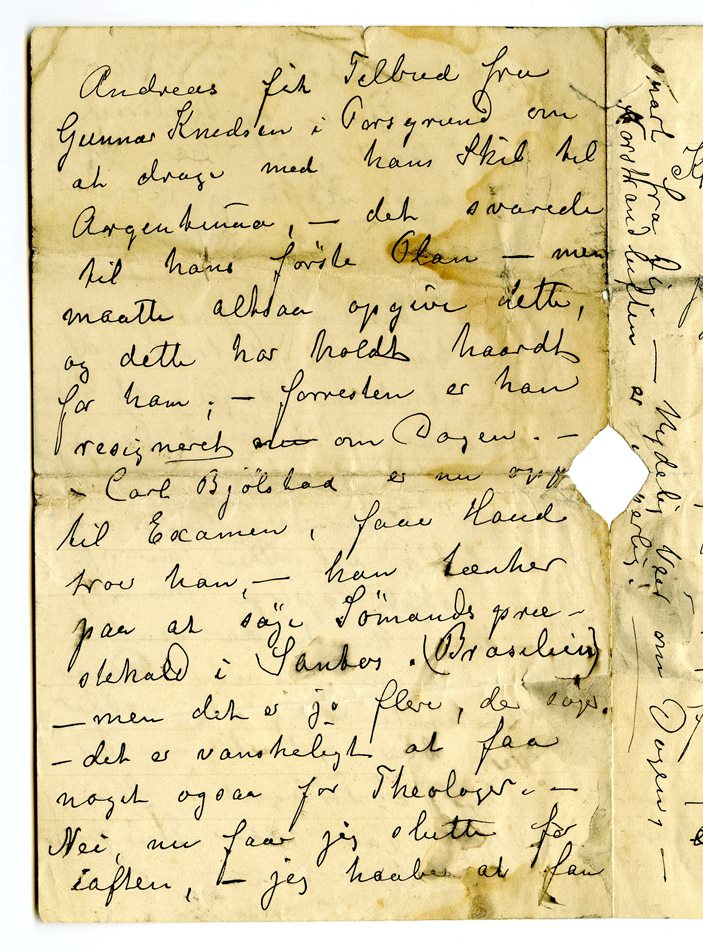 Andreas fik Tilbud fra
Gunnar Knudsen i Porsgrund om
at drage med hans Skib til
Argentinaa, – det svarede
til hans förste Plan – men
maatte altsaa opgive dette,
og dette har holdt haardt
for ham; – forresten er han
resigneret nu om Dagen. –
– Carl Bjölstad er nu oppe
til Examen, faar Haud
tror han, – han tænker
paa at söge Sömandspræ-
stekald i Santos. (Brasilien)
– men det er jo flere, der söger.
– det er vanskeligt at faa
noget ogsaa for Theologer. –
Nei, nu faar jeg slutte for
iaften, – jeg haaber at faa
snart fra Dig – Nydelig Veir om Dagen, –
Korstrandluften er herlig!